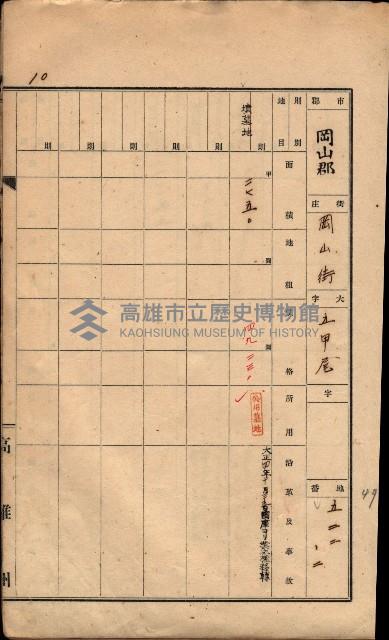 10
市郡 岡山郡
街庄 岡山街
大字 五甲尾
字
地番 五二二ノ二
49
則別 則 則 則 則 則 則
地目 墳墓地
面積 甲 二七五〇
地租 圓
價格 圓 四九二三
所用 公用墓地
沿革及事故
大正四年
高雄州
高雄市立歷史博物館
KAOHSIUNG MUSEUM OF HISTORY